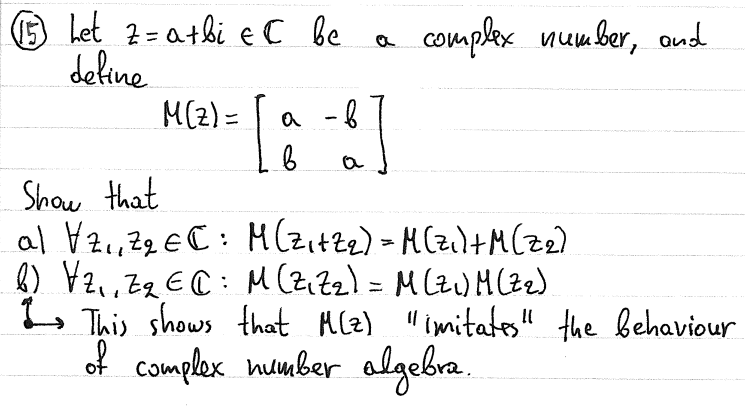 ⑮ Let z = a+bi ∈ ℂ be a complex number, and
define
M(z) = [ a -b
b a ]
Show that
a) ∀z₁,z₂ ∈ ℂ : M(z₁+z₂) = M(z₁)+M(z₂)
b) ∀z₁,z₂ ∈ ℂ : M(z₁z₂) = M(z₁)M(z₂)
↳ This shows that M(z) "imitates" the behaviour
of complex number algebra.